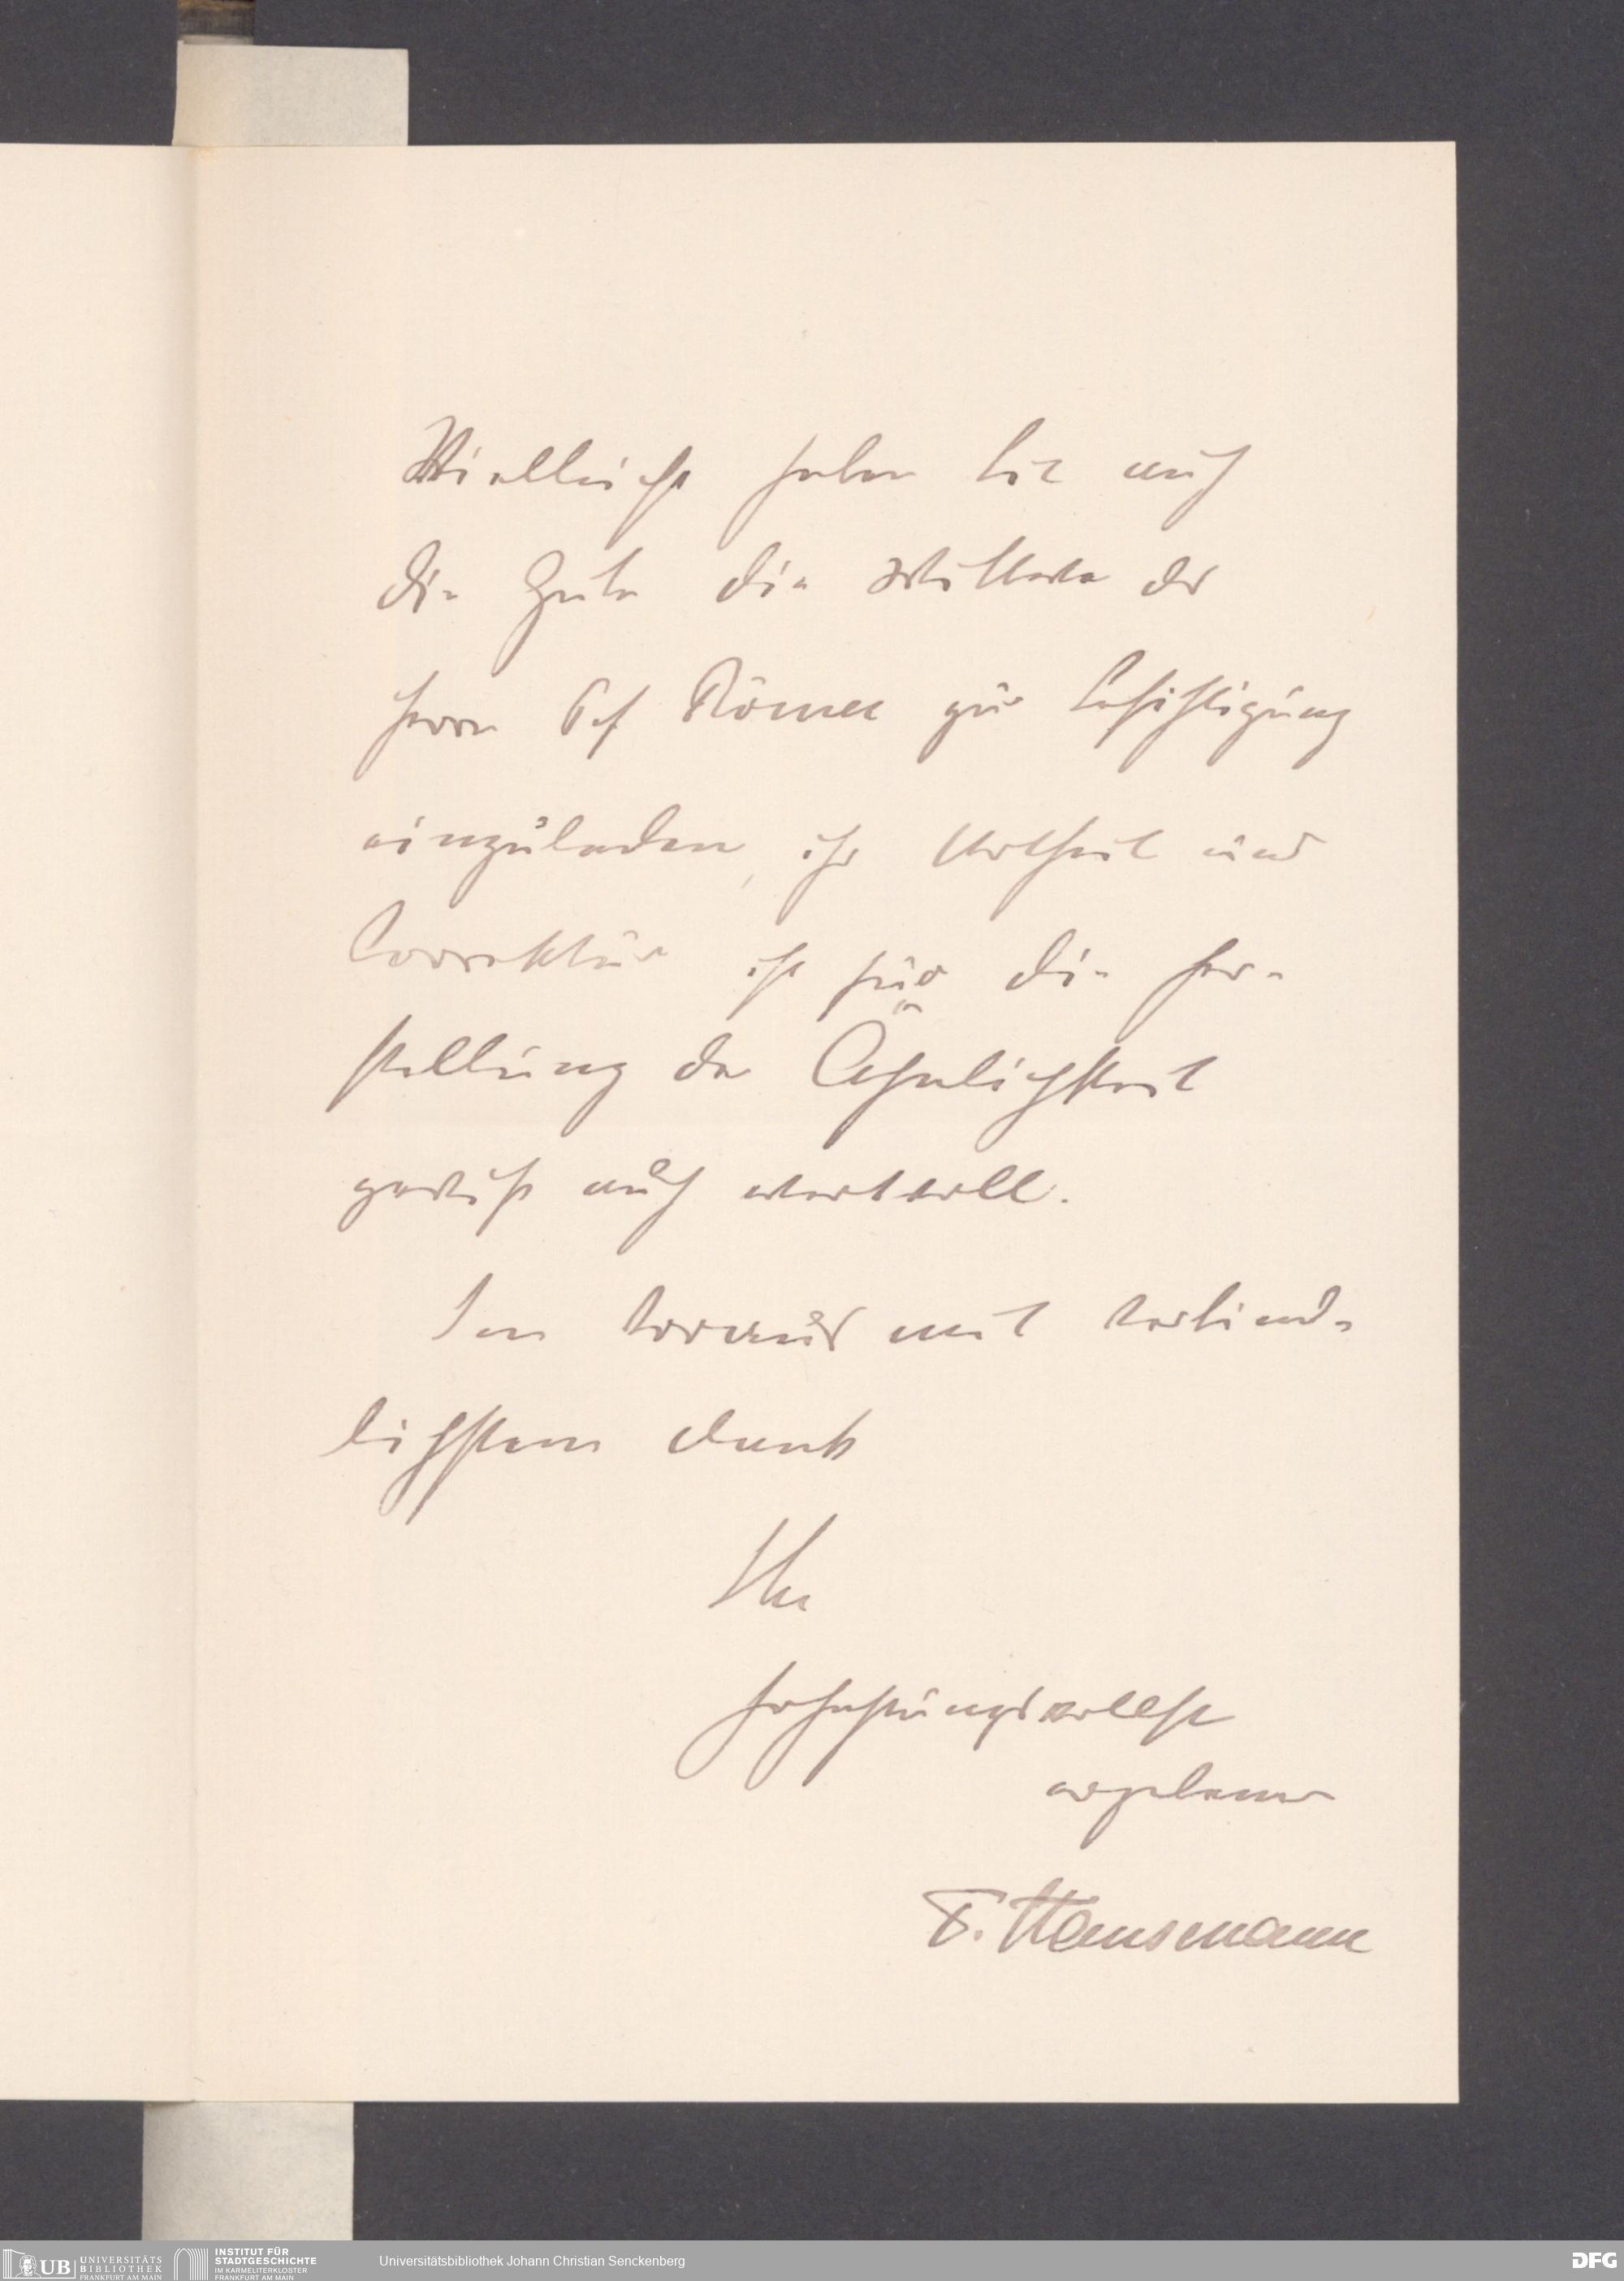 Vielleicht haben Sie auch
die Güte die Wittwe des
Herrn Prf Römer zur Besichtigung
einzuladen, ihr Urtheil und
Correktur ist für die Her-
stellung der Ähnlichkeit
gewiß auch wertvoll.
Im Voraus mit verbind-
lichstem Dank
Ihr
hochachtungsvollst
ergebener
F. Hausmann
UB UNIVERSITÄTS
BIBLIOTHEK
FRANKFURT AM MAIN
INSTITUT FÜR
STADTGESCHICHTE
IM KARMELITERKLOSTER
FRANKFURT AM MAIN
Universitätsbibliothek Johann Christian Senckenberg
DFG